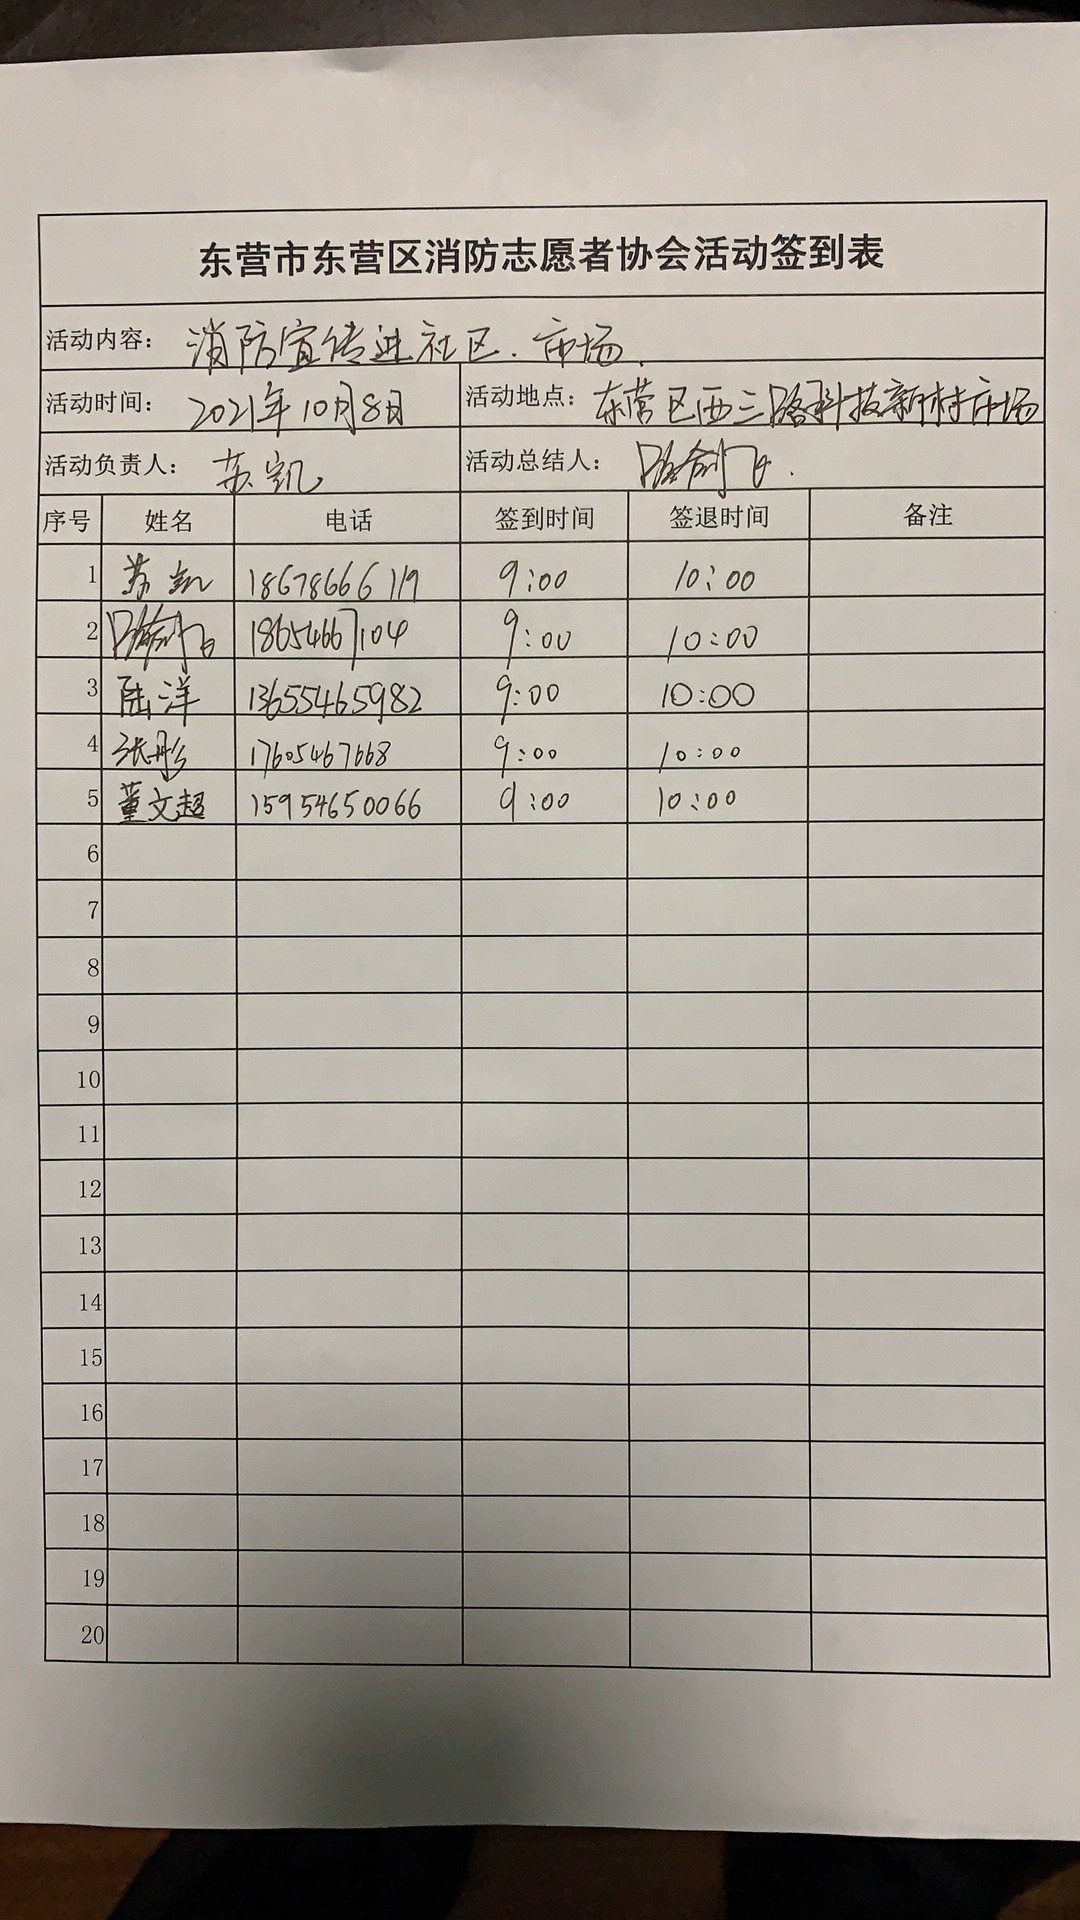 东营市东营区消防志愿者协会活动签到表
活动内容： 消防宣传进社区、市场.
活动时间： 2021年10月8日 活动地点： 东营区西三路科技新村市场
活动负责人： 苏凯 活动总结人：
序号 姓名 电话 签到时间 签退时间 备注
1 苏凯 18678666119 9:00 10:00
2 18654667104 9:00 10:00
3 陆洋 13655465982 9:00 10:00
4 张彤 17605467668 9:00 10:00
5 董文超 15954650066 9:00 10:00
6
7
8
9
10
11
12
13
14
15
16
17
18
19
20